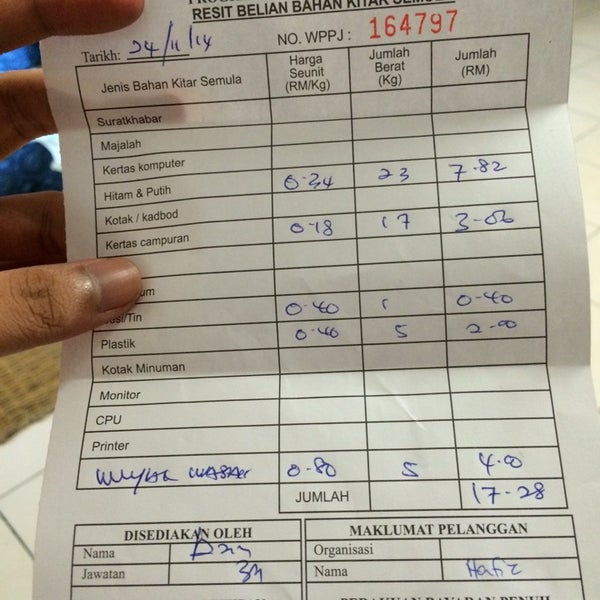 RESIT BELIAN BAHAN KITAR
Tarikh: 24/11/14 NO. WPPJ: 164797
Jenis Bahan Kitar Semula Harga Seunit (RM/Kg) Jumlah Berat (Kg) Jumlah (RM)
Suratkhabar
Majalah
Kertas komputer
Hitam & Putih 0.34 23 7.82
Kotak / kadbod
Kertas campuran 0.18 17 3.06
um
esi/Tin 0.40 1 0.40
Plastik 0.40 5 2.00
Kotak Minuman
Monitor
CPU
Printer
0.80 5 4.00
JUMLAH 17.28
DISEDIAKAN OLEH MAKLUMAT PELANGGAN
Nama Organisasi
Jawatan Nama Hafiz
PERAKUAN BAYARAN PENUH